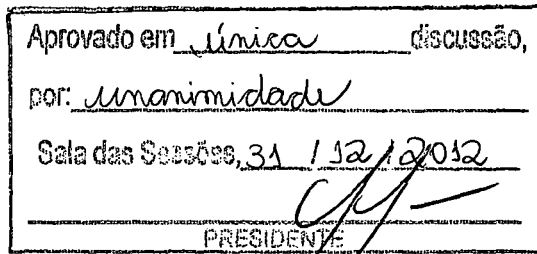 Aprovado em única discussão,
por: unanimidade
Sala das Sessões, 31 / 12 / 2012
PRESIDENTE